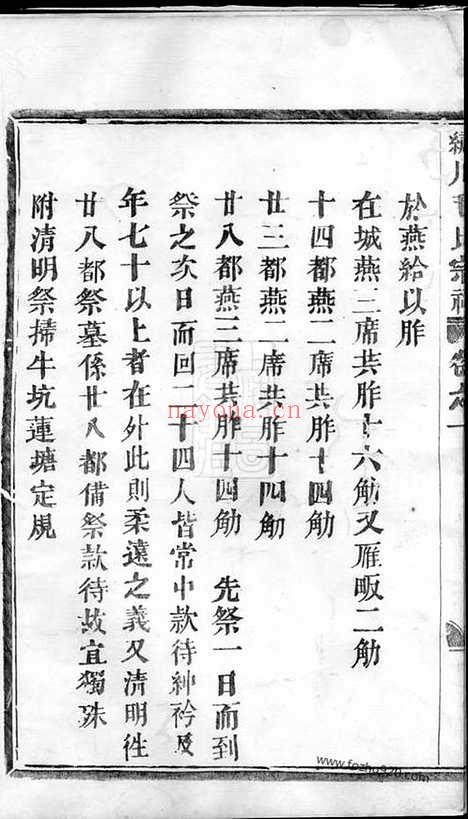 於燕給以胙
在城燕三席共胙十六觔又雁畈二觔
十四都燕二席共胙十四觔
廿三都燕二席共胙十四觔
廿八都燕三席共胙十四觔 先祭一日而到
祭之次日而回二十四人皆常中款待紳衿及
年七十以上者在外此則柔遠之義又清明徃
廿八都祭墓係廿八都備祭款待故宜獨殊
附清明祭掃牛坑蓮塘定規
nayona.cn
www.fozhu920.com